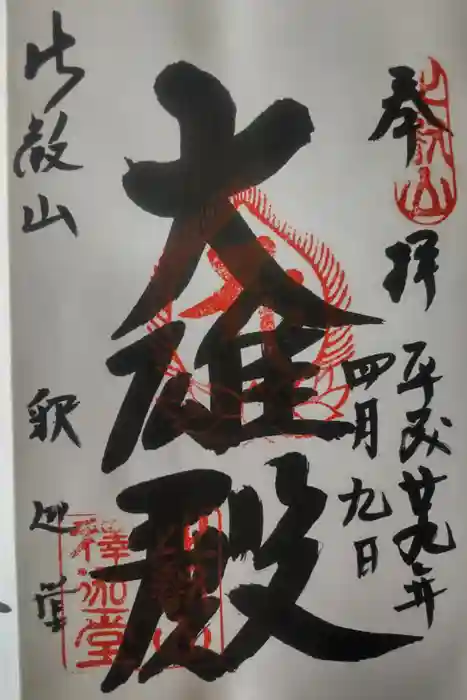 奉拝
平成廿九年
四月九日
大雄殿
比叡山
釈迦堂
比叡山
釋迦堂